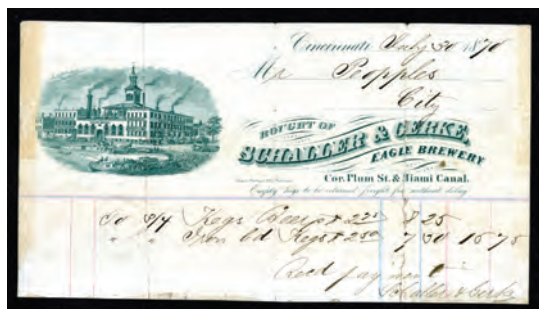 Cincinnati July 30 1870
Mr Peopples
City
BOUGHT OF
SCHALLER & GERKE,
EAGLE BREWERY
Cor. Plum St. & Miami Canal.
Empty kegs to be returned freight free without delay
Kegs Beer 2 25 8 25
" " Iron bd Kegs 2 50 7 50 15 75
Recd payment
Schaller & Gerke